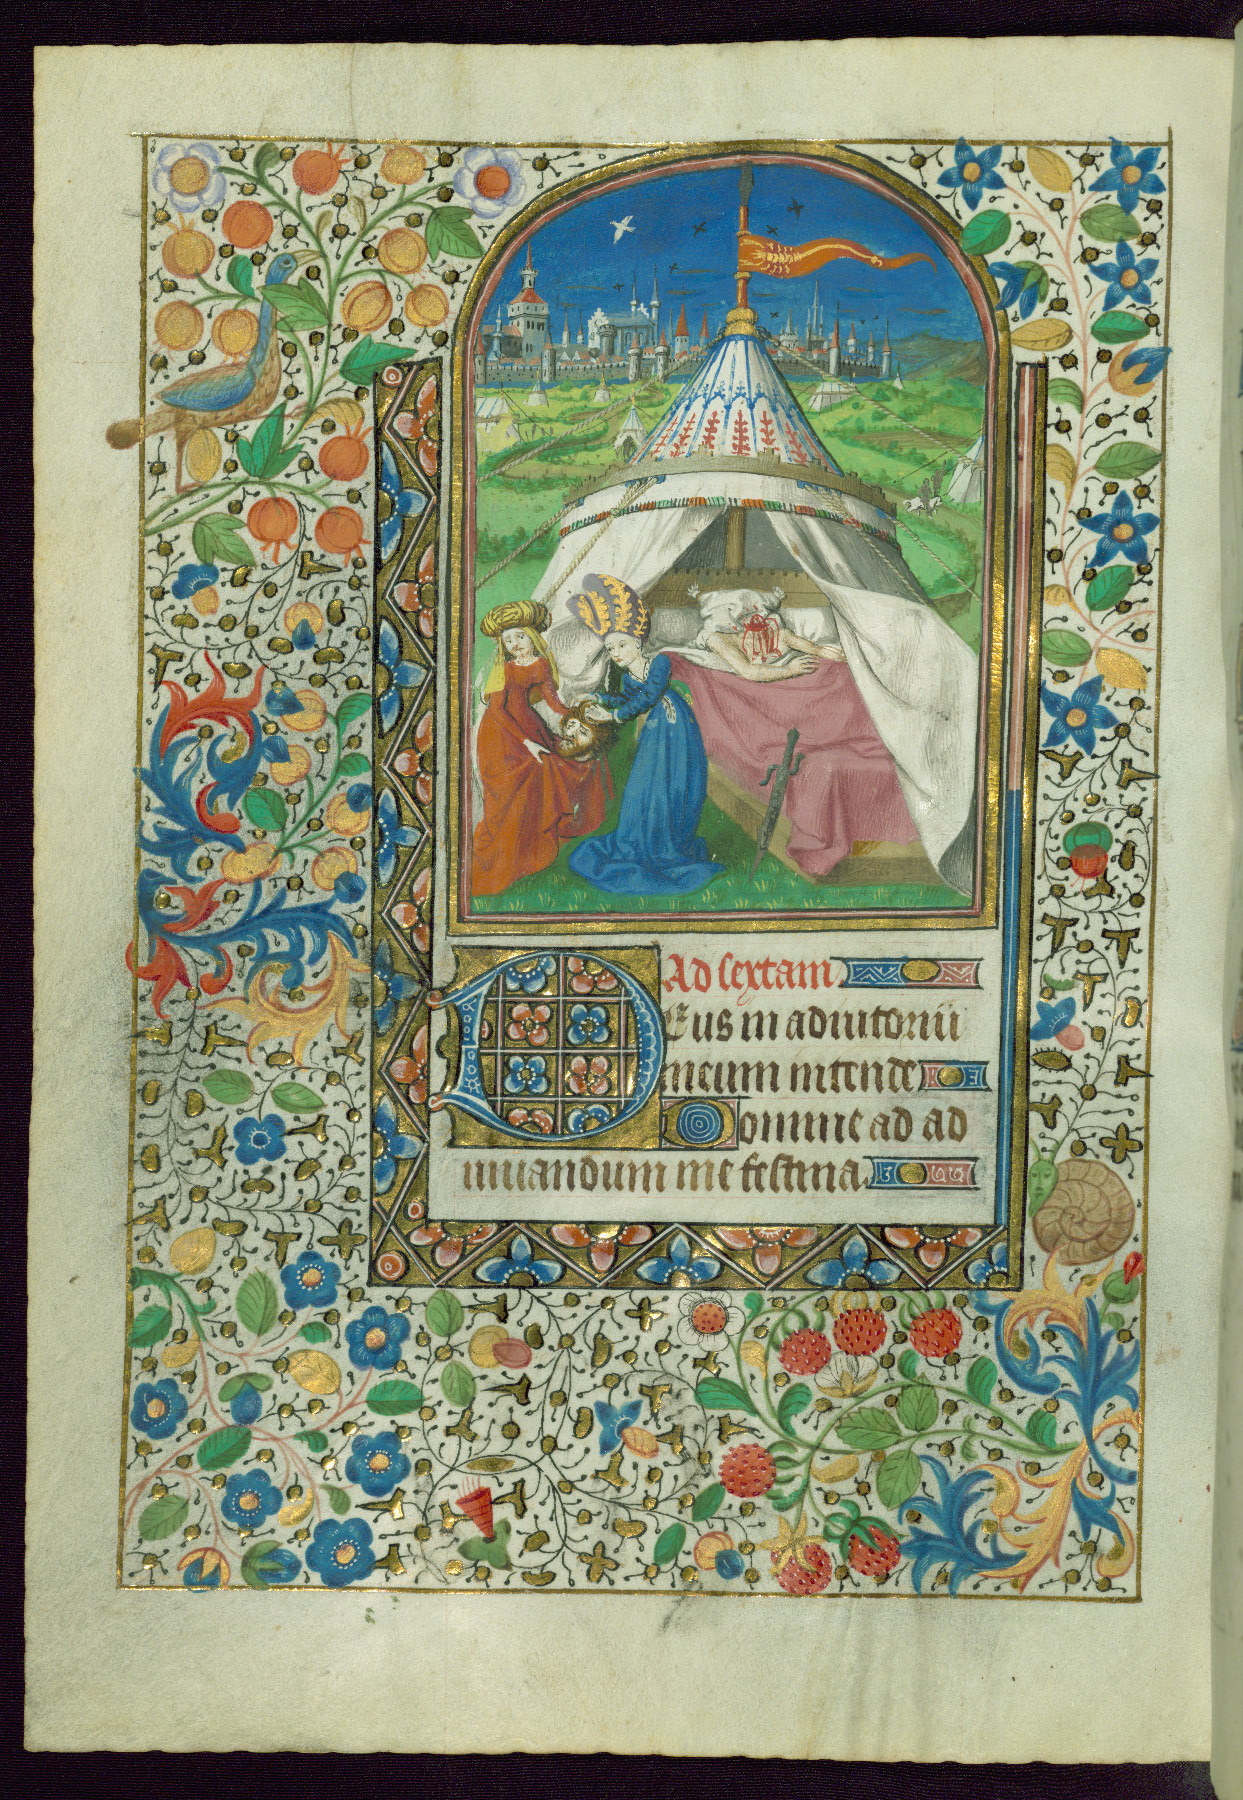 Ad sextam
Deus in adiutoriu
meum intende
Domine ad ad
iuuandum me festina.